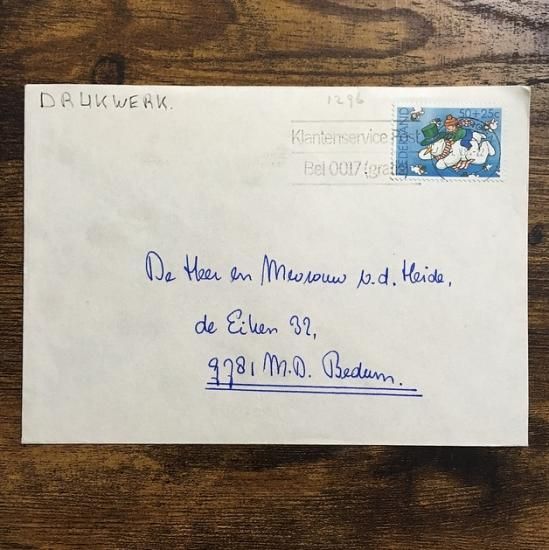 DRUKWERK.
1296
Klantenservice Post
Bel 0017 (gratis)
50+25c
NEDERLAND
De Heer en Mevrouw v.d. Heide,
de Eiken 32,
9781 M.D. Bedum.